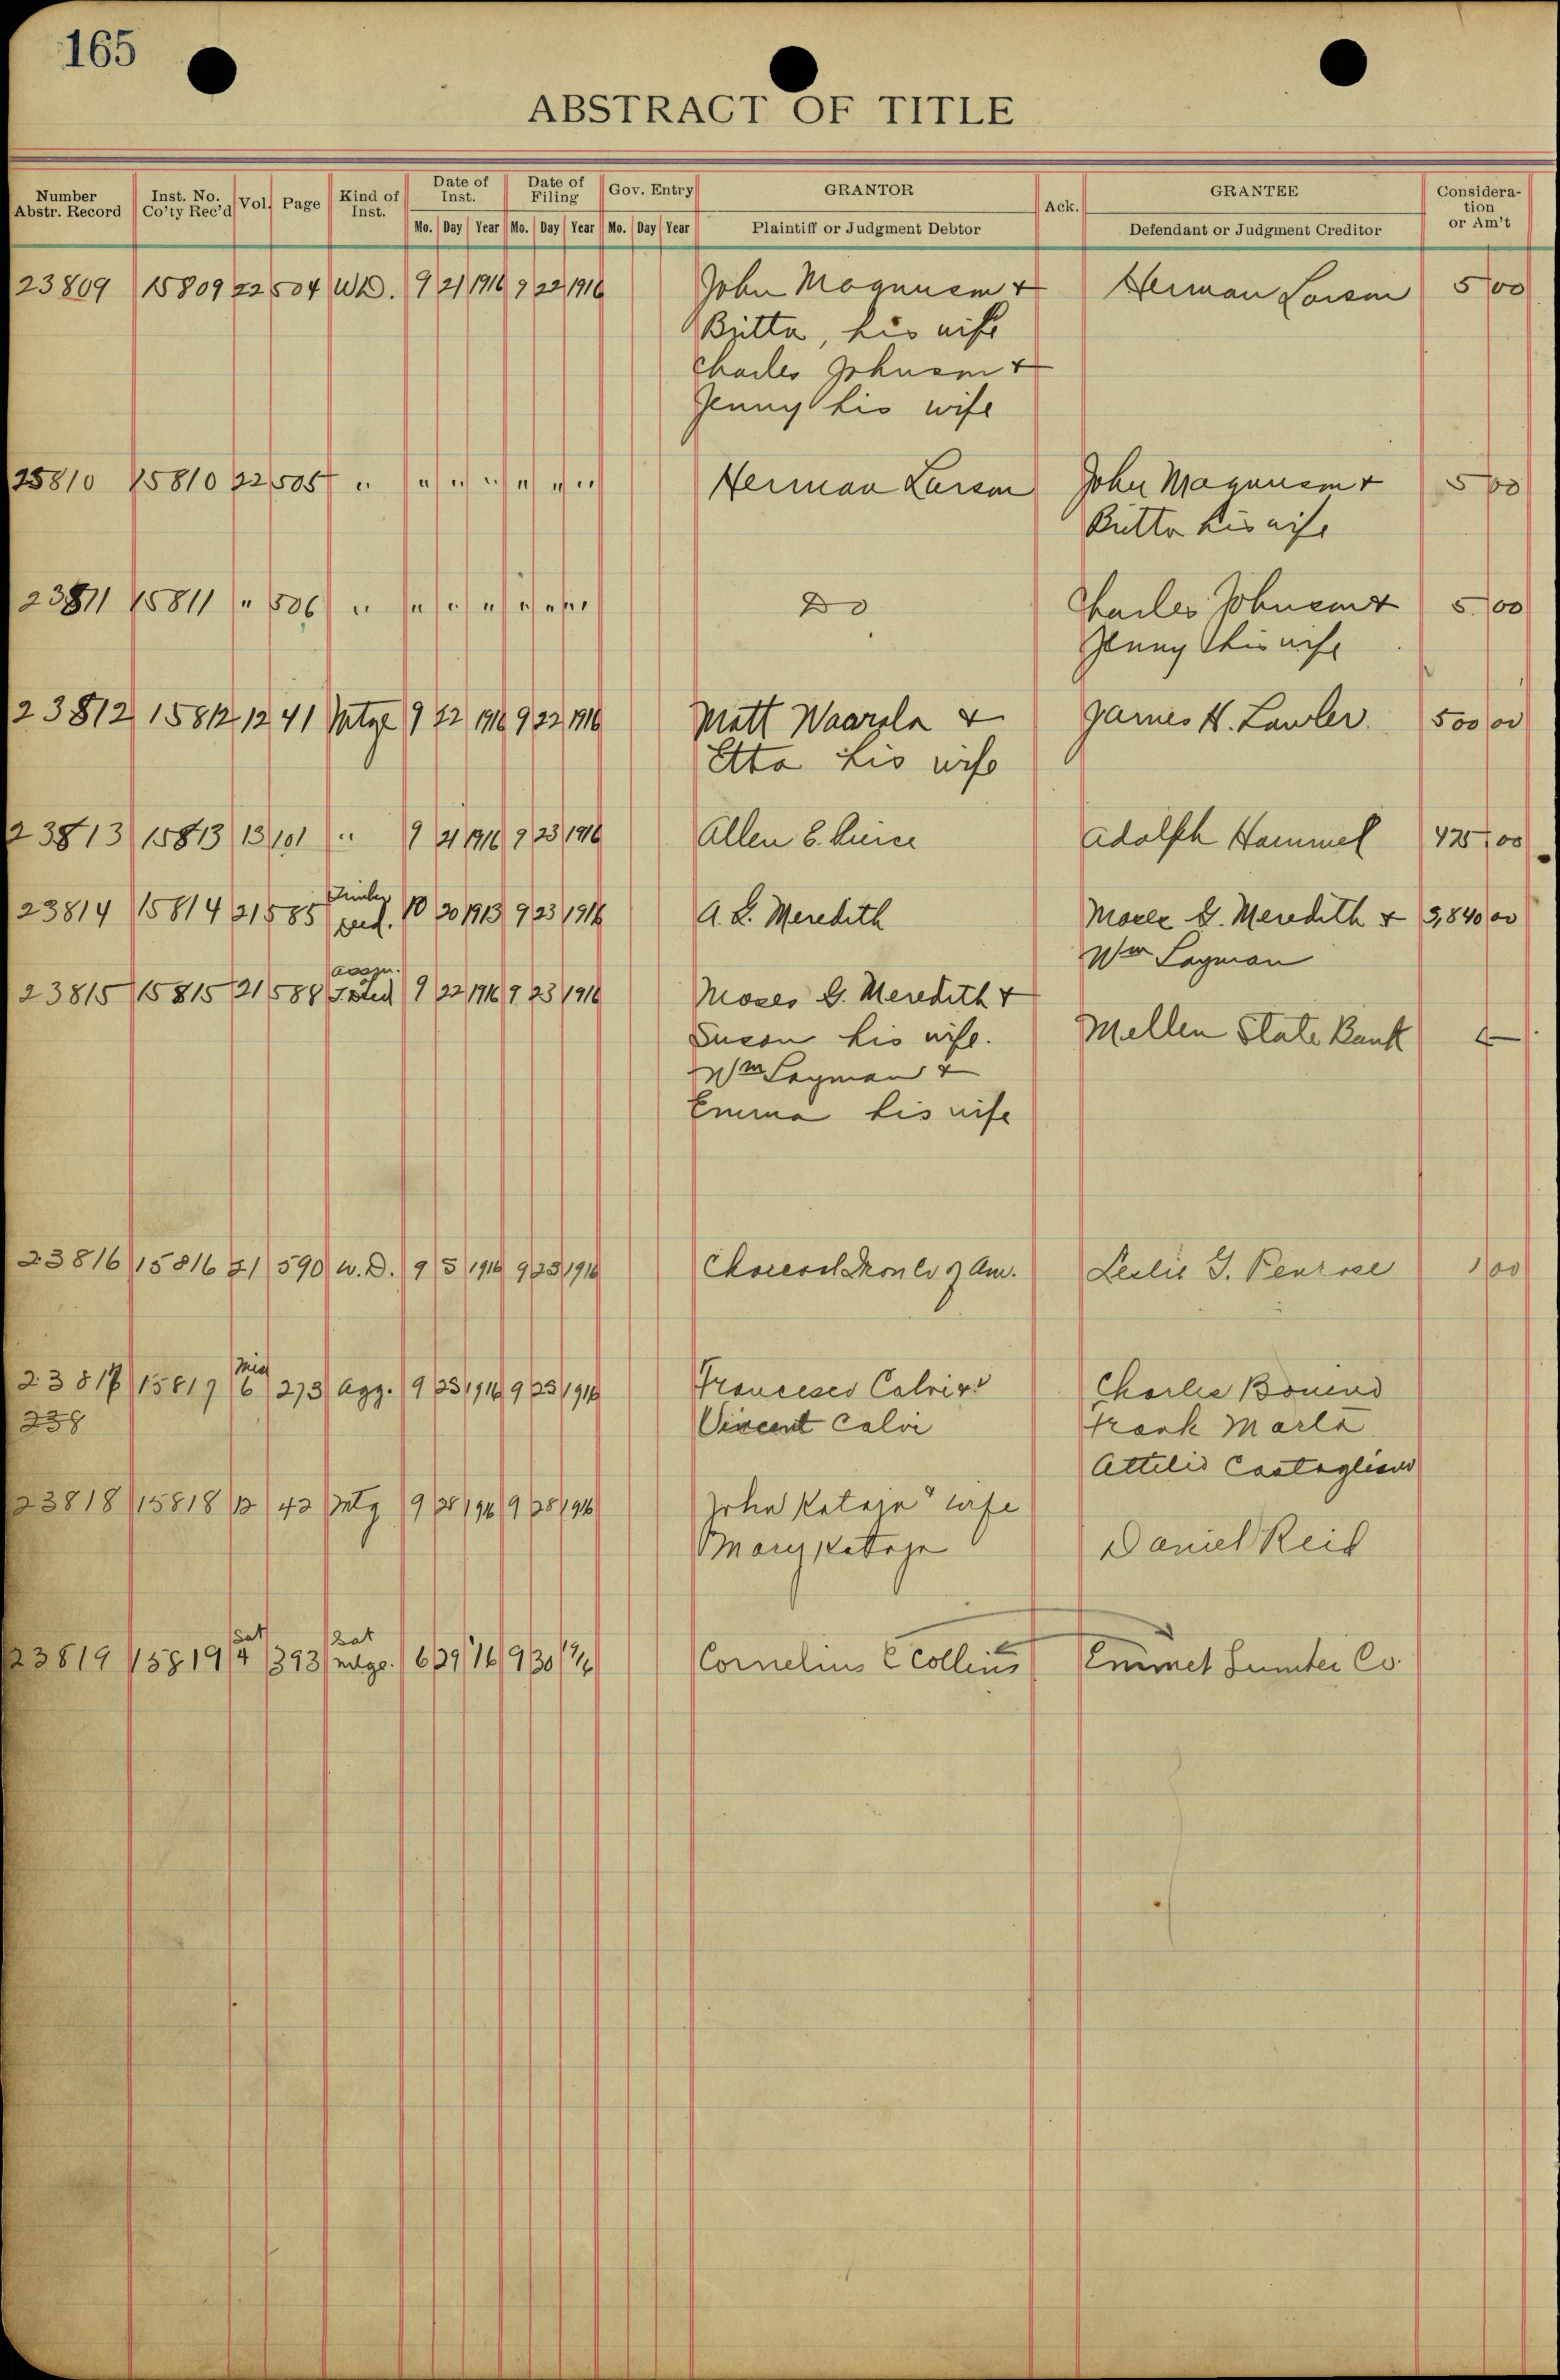 165
ABSTRACT OF TITLE
Number Abstr. Record Inst. No. Co'ty Rec'd Vol. Page Kind of Inst. Date of Inst. Date of Filing Gov. Entry GRANTOR Ack. GRANTEE Consideration or Am't
Mo. Day Year Mo. Day Year Mo. Day Year Plaintiff or Judgment Debtor Defendant or Judgment Creditor
23809 15809 22 504 W.D. 9 21 1916 9 22 1916 John Magnuson & Herman Larson 5 00
Britta, his wife
Charles Johnson &
Jenny his wife
23810 15810 22 505 " " " " " " " Herman Larson John Magnuson & 5 00
Britta his wife
23811 15811 " 506 " " " " " " " Do Charles Johnson & 5 00
Jenny his wife
23812 15812 12 41 Mtge 9 22 1916 9 22 1916 Matt Waarala & James H. Lawler 500 00
Etta his wife
23813 15813 13 101 " 9 21 1916 9 23 1916 Allen E. Pierce Adolph Hammel 425 00
23814 15814 21 585 Timber Deed. 10 20 1913 9 23 1916 A. L. Meredith Moses G. Meredith & 3,840 00
Wm Layman
23815 15815 21 588 Assgn. T. Deed 9 22 1916 9 23 1916 Moses G. Meredith &
Susan his wife. Mellen State Bank
Wm Layman &
Emma his wife
23816 15816 21 590 W.D. 9 5 1916 9 25 1916 Charcoal Iron Co of Am. Leslie G. Penrose 1 00
23817 15817 Mis 6 273 Agg. 9 25 1916 9 25 1916 Francesco Calvi & Charlie Bonino
238 Vincent Calvi Frank Marta
Attilio Castagliano
23818 15818 12 42 Mtg 9 28 1916 9 28 1916 John Kataja " wife
Mary Kataja Daniel Reid
23819 15819 Sat 4 393 Sat mtge. 6 29 '16 9 30 '16 Cornelius C Collins Emmet Lumber Co.